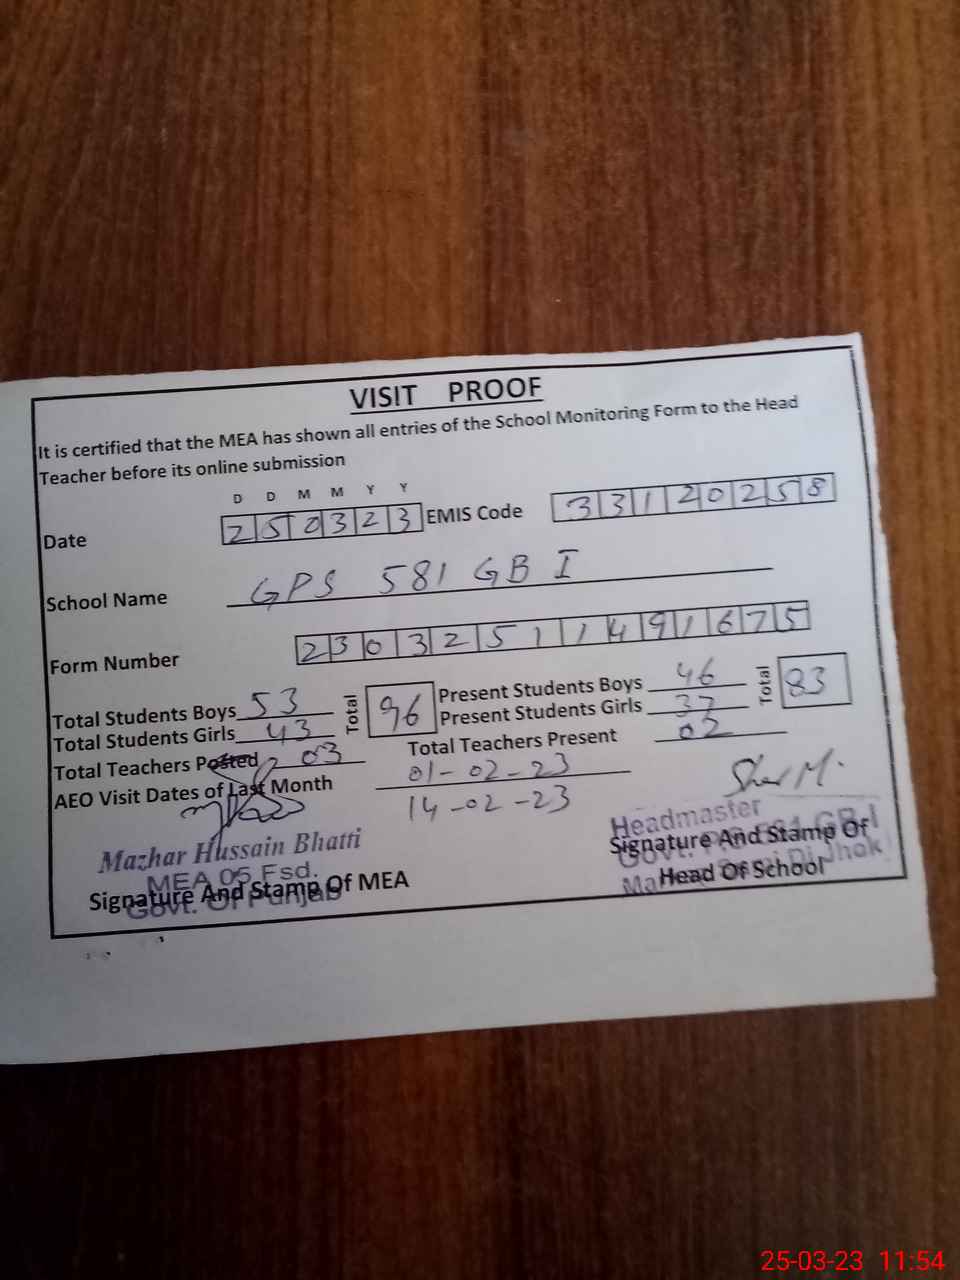 VISIT PROOF
It is certified that the MEA has shown all entries of the School Monitoring Form to the Head
Teacher before its online submission
D D M M Y Y
Date 250323 EMIS Code 33120258
School Name GPS 581 GB I
Form Number 23032511491675
Total Students Boys 53 Total 96 Present Students Boys 46 Total 83
Total Students Girls 43 Present Students Girls 37
Total Teachers Posted 03 Total Teachers Present 02
AEO Visit Dates of Last Month 01-02-23
14-02-23
Mazhar Hussain Bhatti
MEA 05 Fsd.
Govt. Of Punjab
Signature And Stamp Of MEA
Sher M.
Headmaster
Signature And Stamp Of
Head Of School
25-03-23 11:54